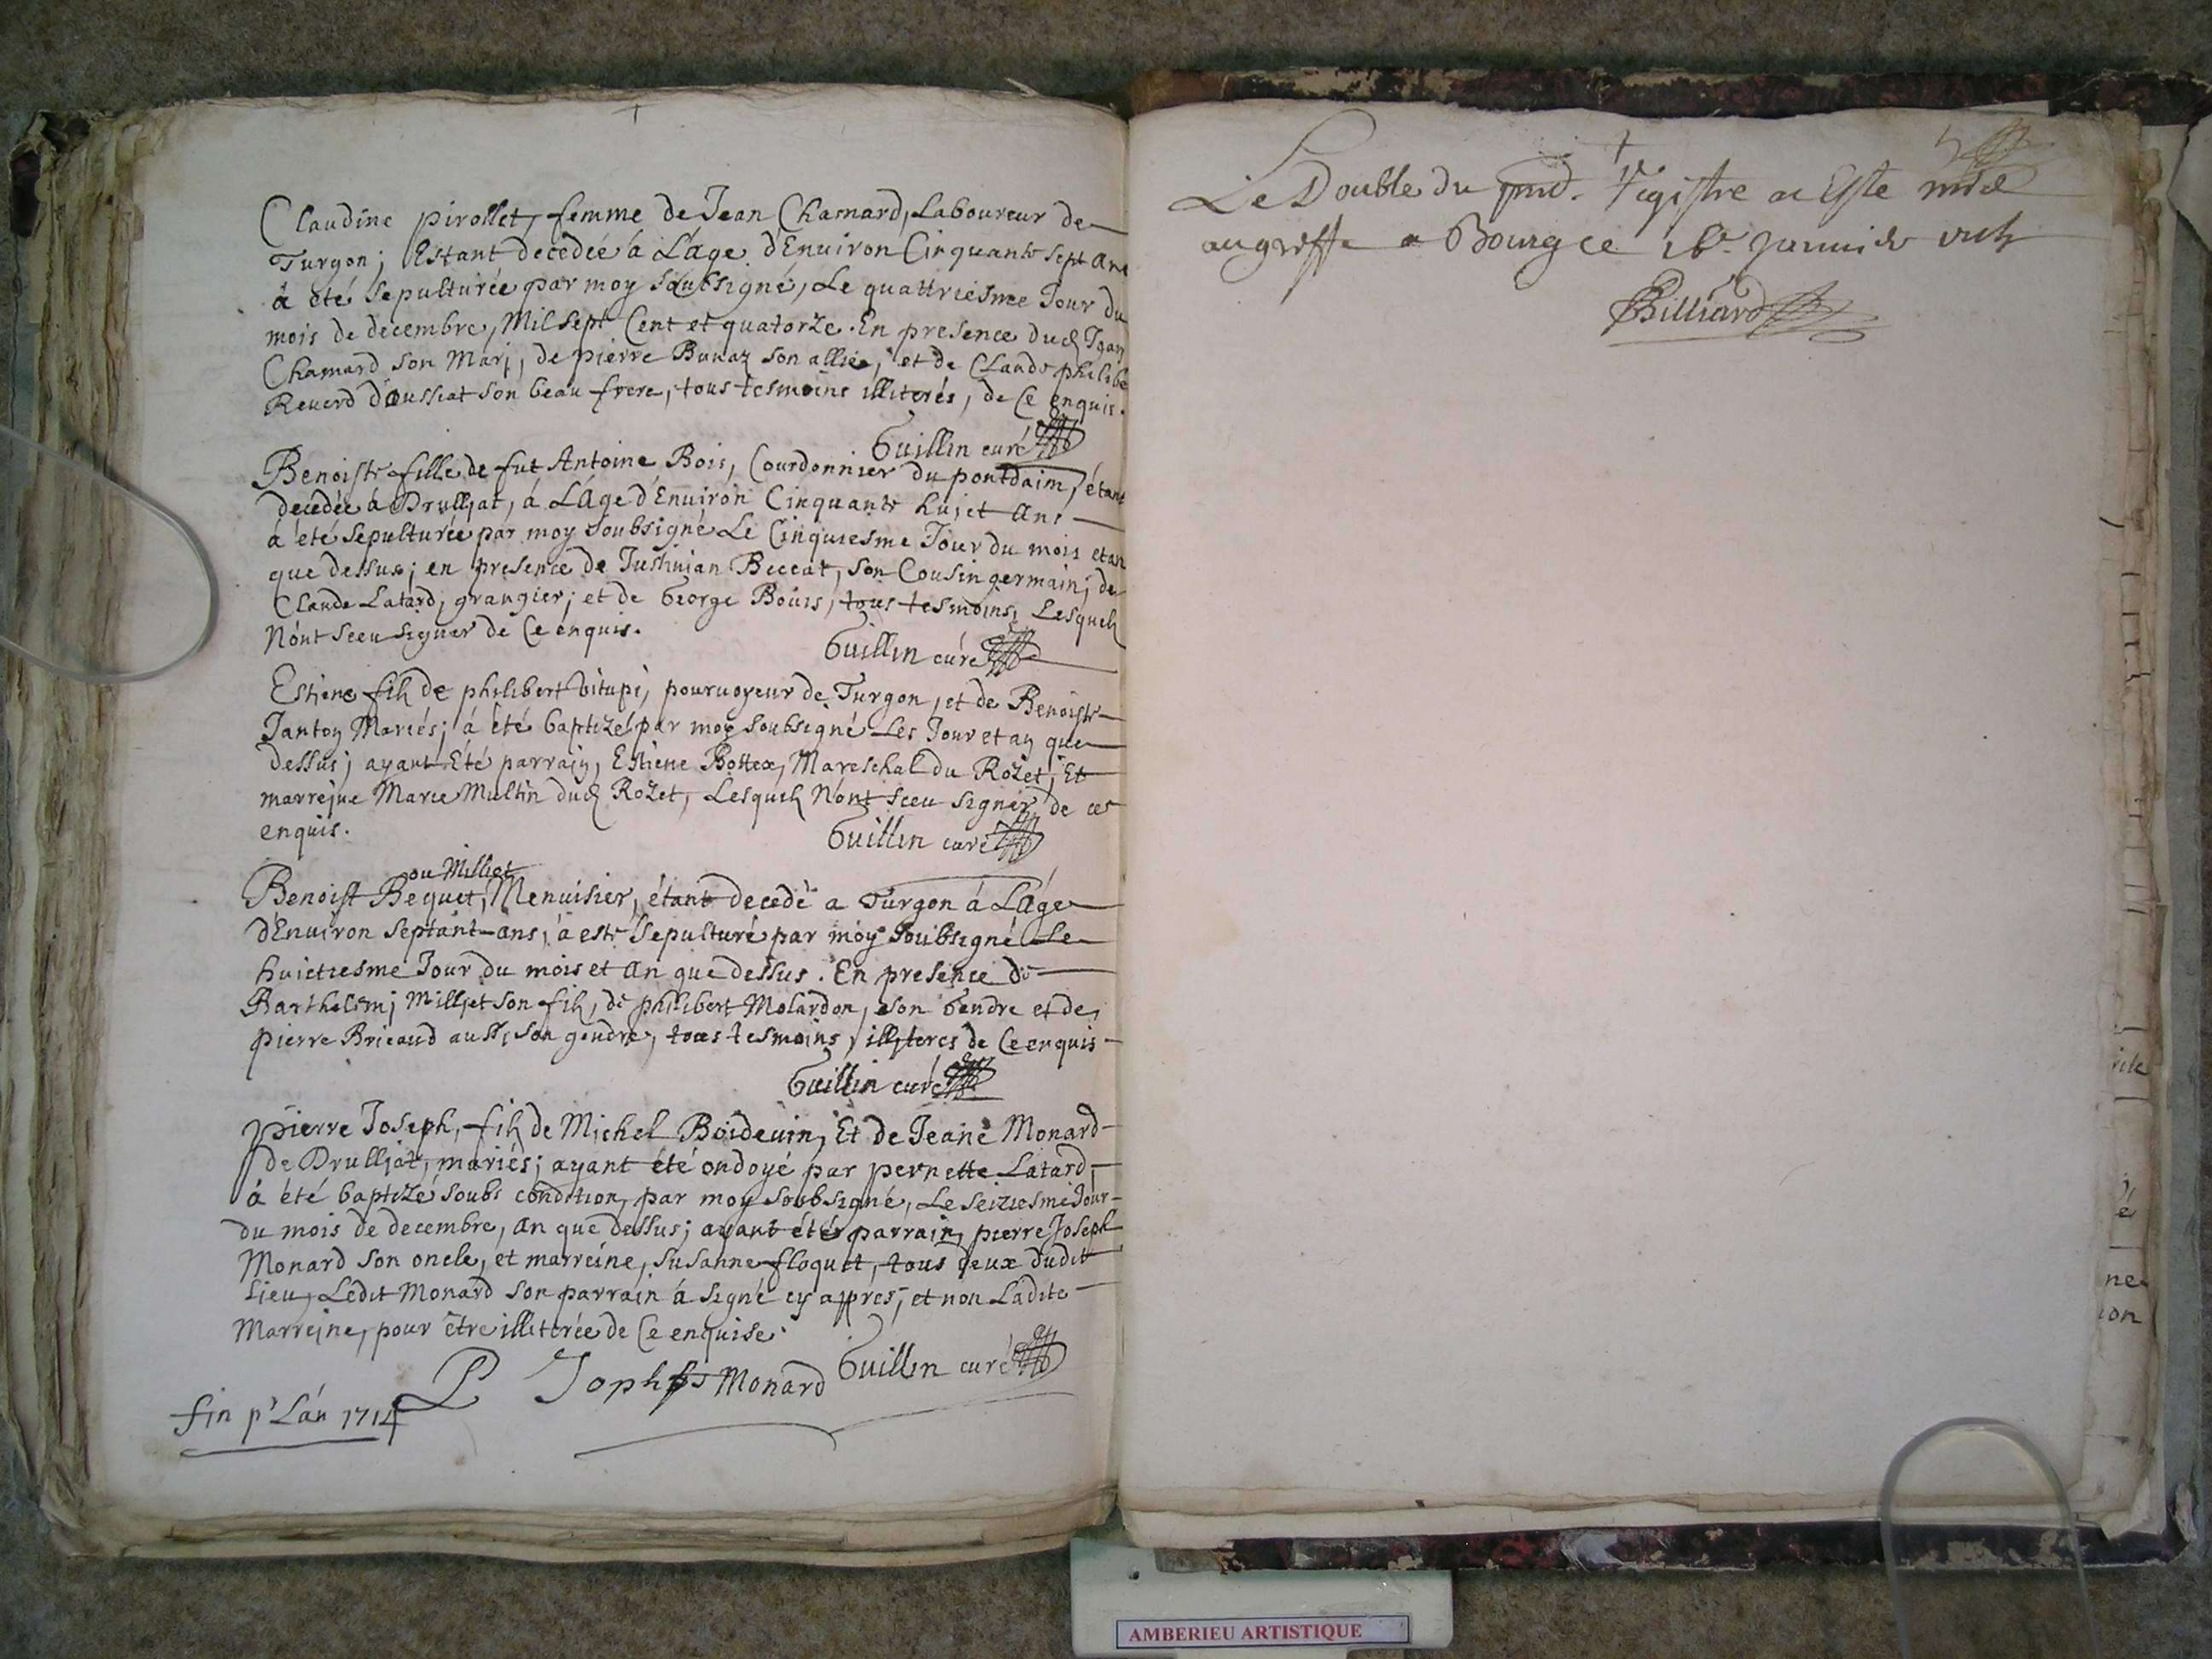 Claudine pirollet, femme de Jean Chamard, Laboureur de
Turgon; Estant decedée á L'age d'Enuiron Cinquante sept ans
á été sepulturée par moy soubsigné, Le quattriesme Jour du
mois de decembre, Mil sept Cent et quatorze. En presence dud Jean
Chamard son Mari, de pierre Bunaz son allié, et de Claude philibe
Reuerd d'oussiat son beau frere, tous tesmoins illiterés, de Ce enquis.
Guillin curé
Benoiste fille de fut Antoine Bois, Courdonnier du pontdaim, étant
decedée á Drulljat, á L'Age d'Enuiron Cinquante huict ans
á été sepulturée par moy soubsigné Le Cinquiesme Jour du mois et an
que dessus; en presence de Justinian Beccat, son Cousin germain; de
Claude Latard, grangier; et de George Bouis, tous tesmoins, Lesquels
N'ont sceu signer de Ce enquis.
Guillin curé
Estiene fils de philibert Vitupi, pouruoyeur de Turgon, et de Benoiste
Jantoy Mariés; á été baptizé par moy soubsigné Les Jour et an que
dessus; ayant Eté parrain, Estiene Bottex, Mareschal du Rozet, Et
marrejne Marie Multin dud Rozet, Lesquels N'ont sceu signer de ce
enquis.
Guillin curé
ou Milliet
Benoist Bequet, Menuisier, étant decedé a Turgon á L'áge
d'Enuiron septant-ans, á esté sepulturé par moy soubsigné Le
huictiesme Jour du mois et an que dessus. En presence de
Barthelemj Milljet son fils, de philibert Molardon, son Gendre et de
pierre Bricaud aussi son gendre, tous tesmoins, illiterés de Ce enquis
Guillin curé
pierre Joseph, fils de Michel Boideuin, Et de Jeane Monard
de Drulljat, mariés; ayant été ondoyé par pernette Latard,
á été baptizé soubs condition, par moy soubsigné, Le seiziesme Jour
du mois de decembre, an que dessus; ayant été parrain, pierre Joseph
Monard son oncle, et marreine, susanne floquet, tous deux dudit
Lieu, Ledit Monard son parrain á signé cy apres, et non Ladite
Marrejne, pour être illiterée de Ce enquise.
Guillin curé
P Joph Monard
fin pr L'án 1714
Le Double du pnt. registre a Esté mis
au greffe a Bourg ce janvier
Billiard
AMBERIEU ARTISTIQUE